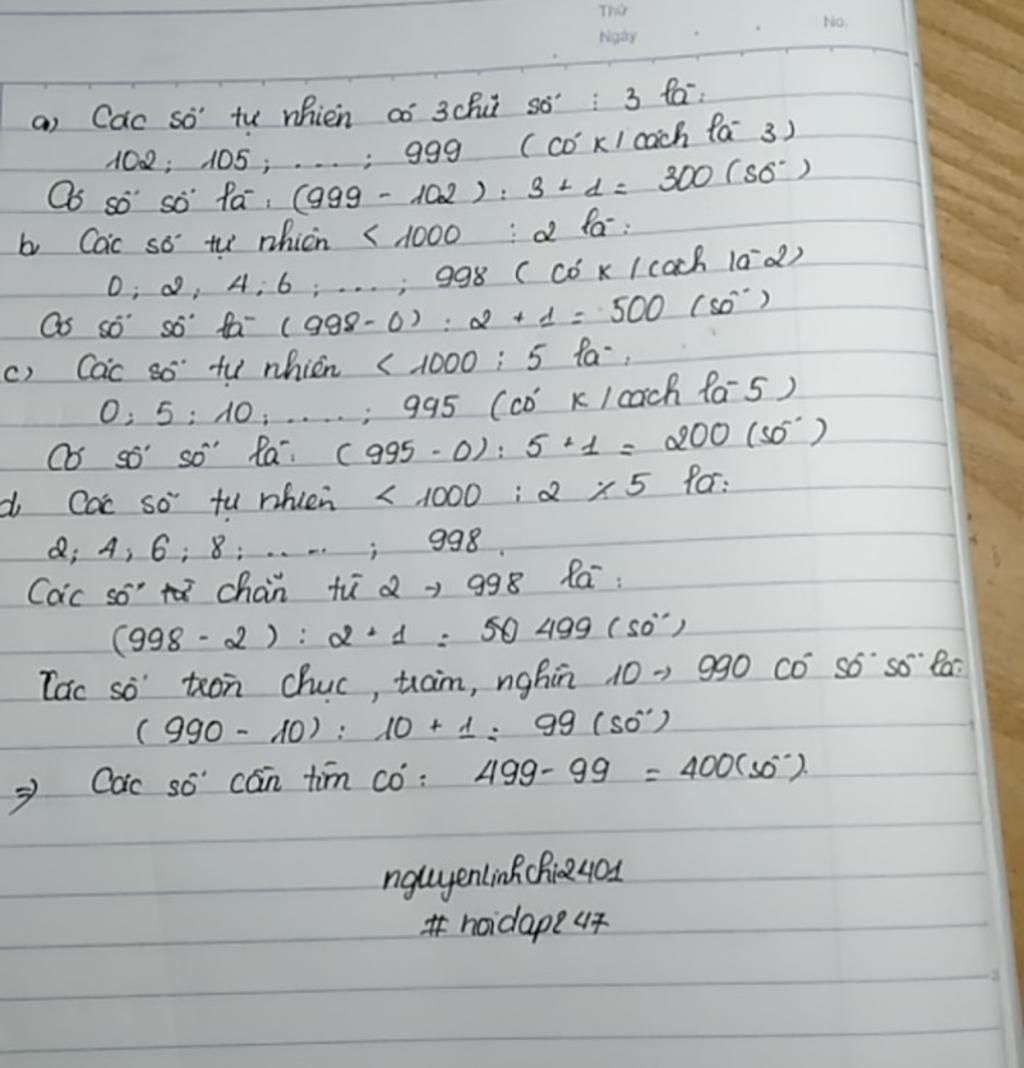 Thứ
Ngày
No.
a) Các số tự nhiên có 3 chữ số ⋮ 3 là:
102; 105; .....; 999 (có k/cách là 3)
Có số số là: (999 - 102) : 3 + 1 = 300 (số)
b, Các số tự nhiên < 1000 ⋮ 2 là:
0; 2; 4; 6; ....; 998 (có k/cách là 2)
Có số số là (998 - 0) : 2 + 1 = 500 (số)
c) Các số tự nhiên < 1000 ⋮ 5 là:
0; 5; 10; .....; 995 (có k/cách là 5)
Có số số là: (995 - 0) : 5 + 1 = 200 (số)
d, Các số tự nhiên < 1000 ⋮ 2 ⋮̸ 5 là:
2; 4; 6; 8; .....; 998.
Các số chẵn từ 2 → 998 là:
(998 - 2) : 2 + 1 = 499 (số)
Các số tròn chục, trăm, nghìn 10 → 990 có số số là:
(990 - 10) : 10 + 1 = 99 (số)
⇒ Các số cần tìm có: 499 - 99 = 400 (số).
nguyenlinhchi2401
# hoidap247